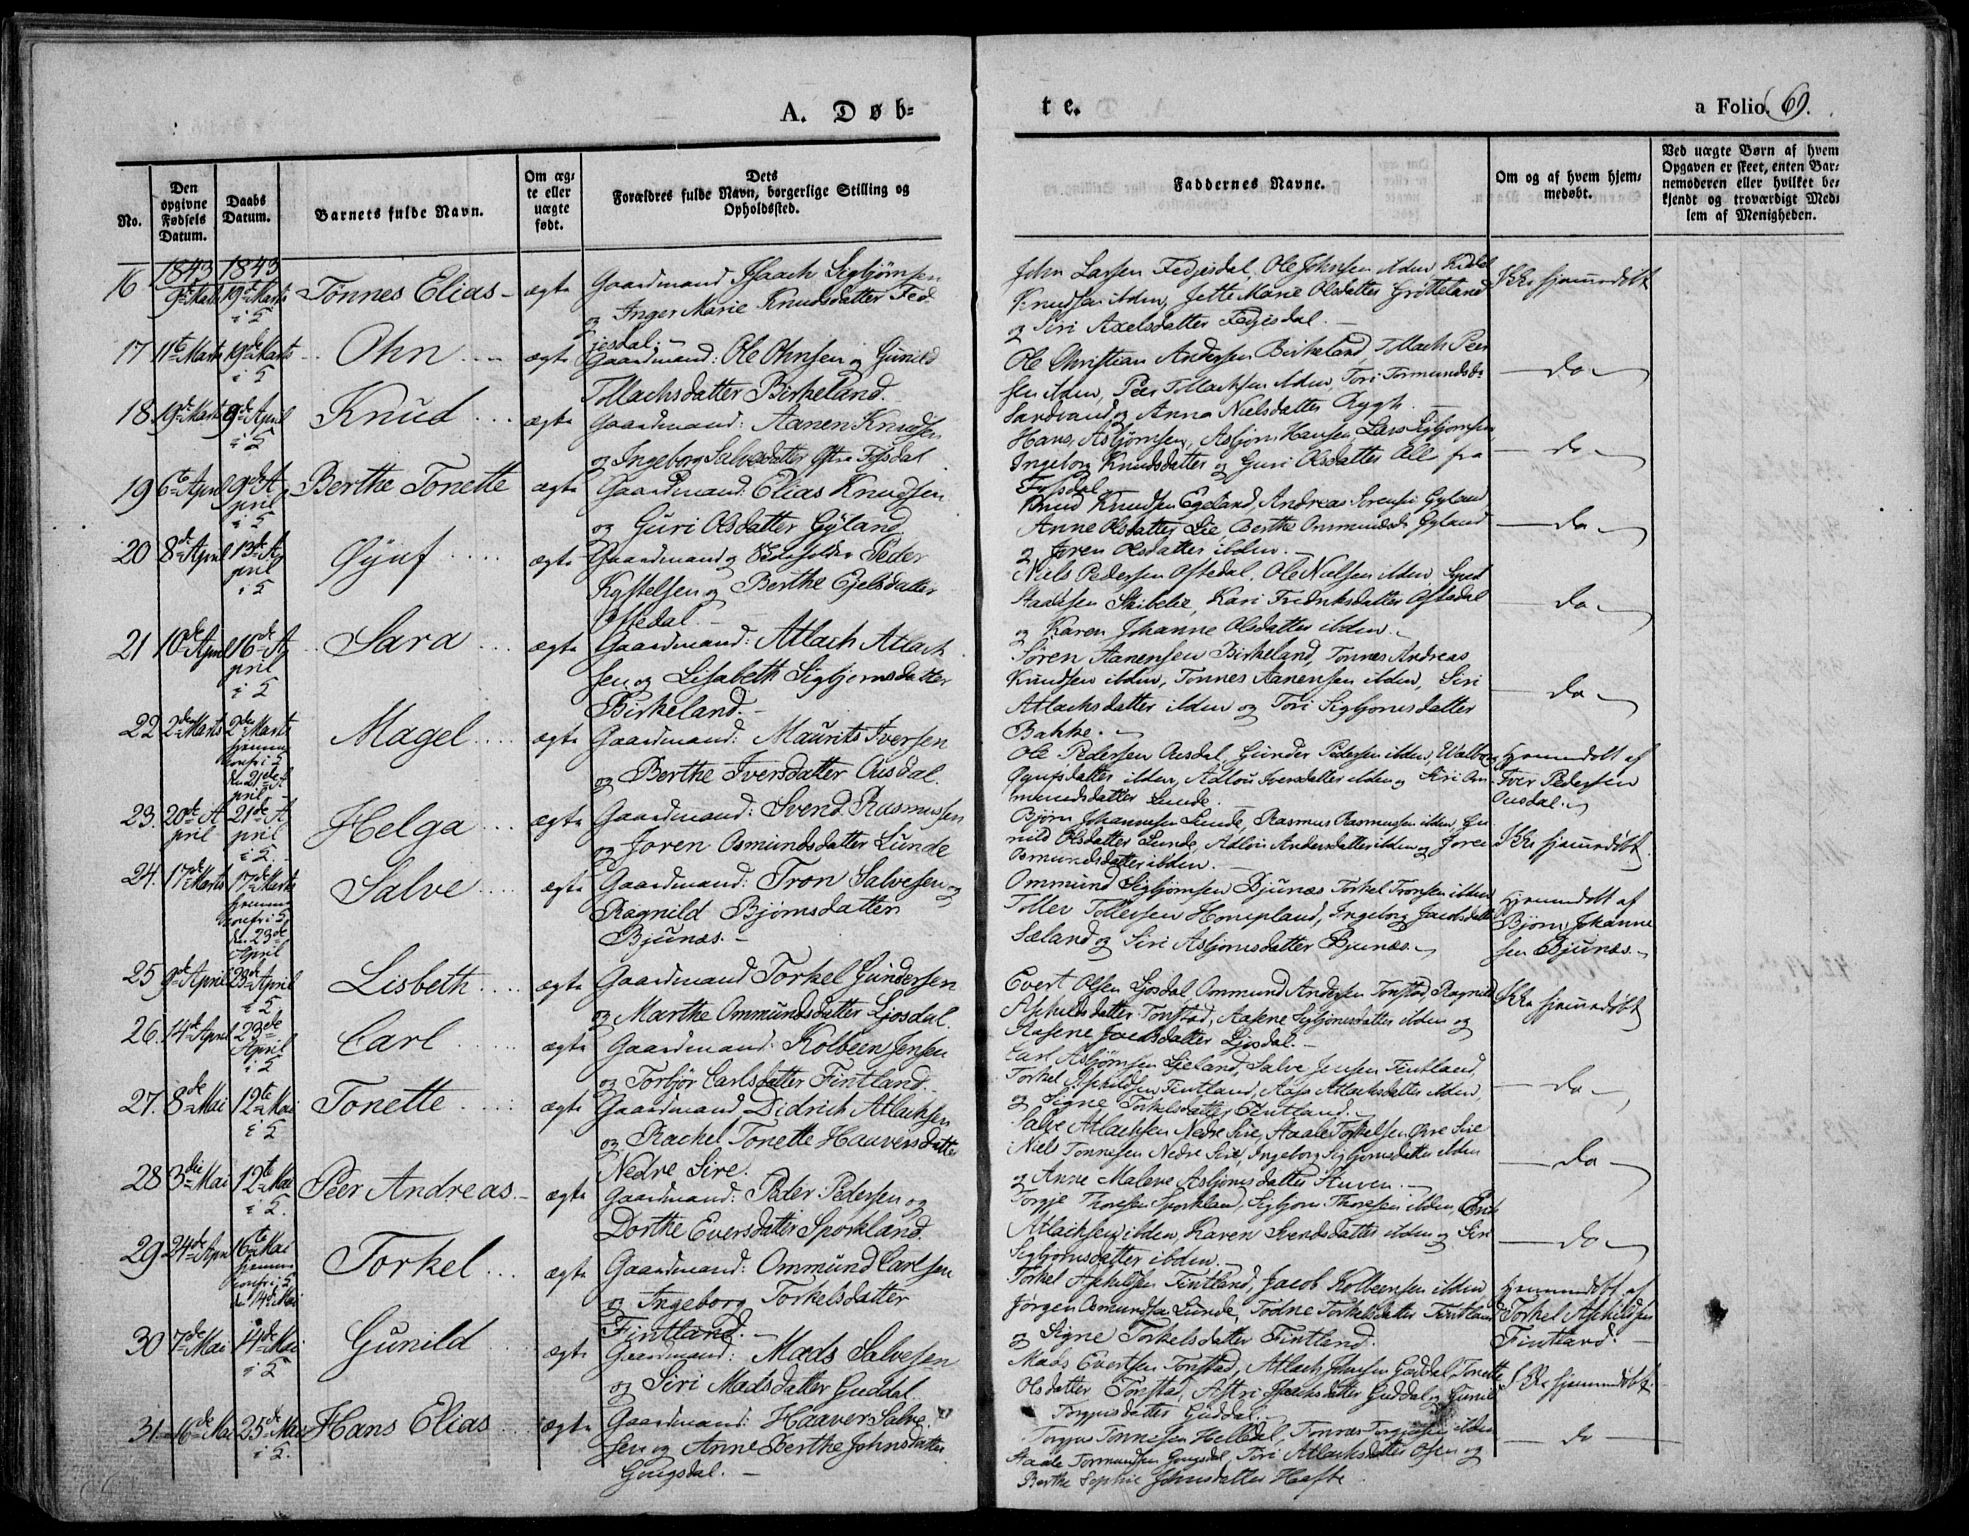 A. Døb=
te.
a Folio 69.
No.
Den opgivne Fødsels Datum.
Daabs Datum.
Barnets fulde Navn.
Om æg= te eller uægte født.
Dets Forældres fulde Navn, borgerlige Stilling og Opholdssted.
Faddernes Navne.
Om og af hvem hjem= medøbt.
Ved uægte Børn af hvem Opgaven er skeet, enten Bar= nemoderen eller hvilket be= kjendt og troværdigt Med= lem af Menigheden.
1843 1843
16 9de Marts 19de Marts i K Tönnes Elias ægte
Gaardmand Isaach Sigbjörnsen
og Inger Marie Knudsdatter Fed
jesdal.
John Larsen Fedjesdal, Ole Johnsen ibden,
Knudsen ibden, Jette Marie Olsdatter Grötteland
og Siri Axelsdatter Fedjesdal.
Ikke hjemmedöbt
17 11te Marts 19de Marts Ohn ægte
Gaardmand: Ole Ohnsen og Gunild
Tollachsdatter Birkeland.
Ole Christian Andersen Birkeland, Tollach Peer
sen ibden, Peer Tollachsen ibden, Tori Tormundsd.
Sandvand og Anna Nielsdatter Rygh.
do
18 19de Marts 9de April Knud ægte
Gaardmand: Aanen Knudsen
og Ingeborg Salvesdatter Öfre Fossdal
Hans Asbjörnsen, Asbjörn Hansen, Lars Sigbjörnsen,
Ingeborg Knudsdatter og Guri Olsdatter Alle fra
Fossdal.
do
19 6te April 9de April Berthe Tonette ægte
Gaardmand: Elias Knudsen
og Guri Olsdatter Gyland
Knud Knudsen Egeland, Andreas Gyland
Anne Olsdatter Lie, Berthe Ommundsd. Gyland
og Jören Olsdatter ibden.
do
20 8de April 13de April Öÿuf ægte
Gaardmand og Peder
Kystelsen og Berthe Ejelsdatter
Oftedal
Niels Pedersen Oftedal, Ole Nielsen ibden,
Staalesen Skibelie, Kari Fredriksdatter Oftedal
og Karen Johanne Olsdatter ibden.
do
21 10de April 16de April Sara ægte
Gaardmand: Atlach Atlach
sen og Lisabeth Sigbjörnsdatter
Birkeland.
Sören Aanensen Birkeland, Tönnes Andreas
Knudsen ibden, Tönnes Aanensen ibden, Siri
Atlachsdatter ibden og Tori Sigbjörnsdatter
Bakke.
do
22 2den Marts 2den Marts Magel ægte
Gaardmand: Maurits Iversen
og Berthe Iversdatter Ousdal
Ole Pedersen Ousdal, Gunder Pedersen ibden,
Öyufsdatter ibden, Adlou Iversdatter ibden og Siri Om
mundsdatter Lunde.
Hjemmedöbt af
Iver Pedersen
Ousdal.
23. 20de April 21de April Helga ægte
Gaardmand: Svend Rasmussen
og Joren Osmundsdatter Lunde
Björn Johannesen Lunde, Rasmus Rasmussen ibden, Gu
nild Olsdatter Lunde, Adlou Andersdatter ibden og Joren
Osmundsdatter ibden.
Ikke hjemmedöbt
24. 17de Marts 17de Marts Salve ægte
Gaardmand: Tron Salvesen og
Ragnild Björnsdatter
Bjunæs.
Ommund Sigbjörnsen Bjunæs, Torkel Tronsen ibden
Toller Tollersen Hompland, Ingeborg Jacobsdatter
Sæland og Siri Asbjörnsdatter Bjunæs.
Hjemmedöbt af
Björn Johanne
sen Bjunæs.
25 9de April 23de April Lisbeth ægte
Gaardmand Torkel Gundersen
og Marthe Ommundsdatter Ljosdal.
Evert Olsen Ljosdal, Ommund Andersen Tonstad, Ragnild
Aphildsdatter Tonstad, Aasene Sigbjörnsdatter ibden og
Aasene Jacobsdatter Ljosdal.
Ikke hjemmedöbt
26. 14de April 23de April Carl ægte
Gaardmand: Kolbeen Jensen
og Torbjör Carlsdatter Fintland.
Carl Asbjörnsen Sjeland, Salve Jensen Fintland,
Torkel Aphildsen Fintland, Aasa Atlachsdatter ibden,
og Signe Torkelsdatter Fintland.
do
27. 8de Mai 12te Mai Tonette ægte
Gaardmand Didrich Atlachsen
og Rachel Tonette Hauversdatter
Nedre Sire.
Salve Atlachsen Nedre Sire, Staale Torkelsen Övre Sire
Niels Tönnesen Nedre Sire, Ingeborg Sigbjörnsdatter ibden
og Anne Malene Asbjörnsdatter Stuven.
do
28 3die Mai 12te Mai Peer Andreas ægte
Gaardmand: Peder Pedersen og
Dorthe Eversdatter Sporkland.
Torgje Thoresen Sporkland, Sigbjörn Thoresen ibden,
Atlachsen ibden, Karen Svendsdatter ibden og Siri
Sigbjörnsdatter ibden.
do
29 24de April 16te Mai Torkel ægte
Gaardmand: Ommund Carlsen
og Ingeborg Torkelsdatter
Fintland.
Torkel Aphildsen Fintland, Jacob Kolbeensen ibden,
Jörgen Osmundsen Lunde, Todne Torkelsdatter Fintland
og Signe Torkelsdatter Fintland.
Hjemmedöbt af
Torkel Aphildsen
Fintland.
30 7de Mai 14de Mai Gunild ægte
Gaardmand: Mads Salvesen
og Siri Madsdatter Guddal
Mads Evertsen Tonstad, Atlach Johnsen Guddal, Tonette
Olsdatter Tonstad, Astri Isachsdatter Guddal og Gunild
Torgjusdatter Guddal.
Ikke hjemmedöbt
31. 16de Mai 25de Mai Hans Elias ægte
Gaardmand: Haaver Salve
sen og Anne Berthe Johnsdatter
Gougsdal.
Torgju Tönnesen Helledal, Tönnes Torgjusen ibden
Staale Tormundsen Gougsdal, Tori Atlachsdatter Osen og
Berthe Sophie Johnsdatter Haafte
do